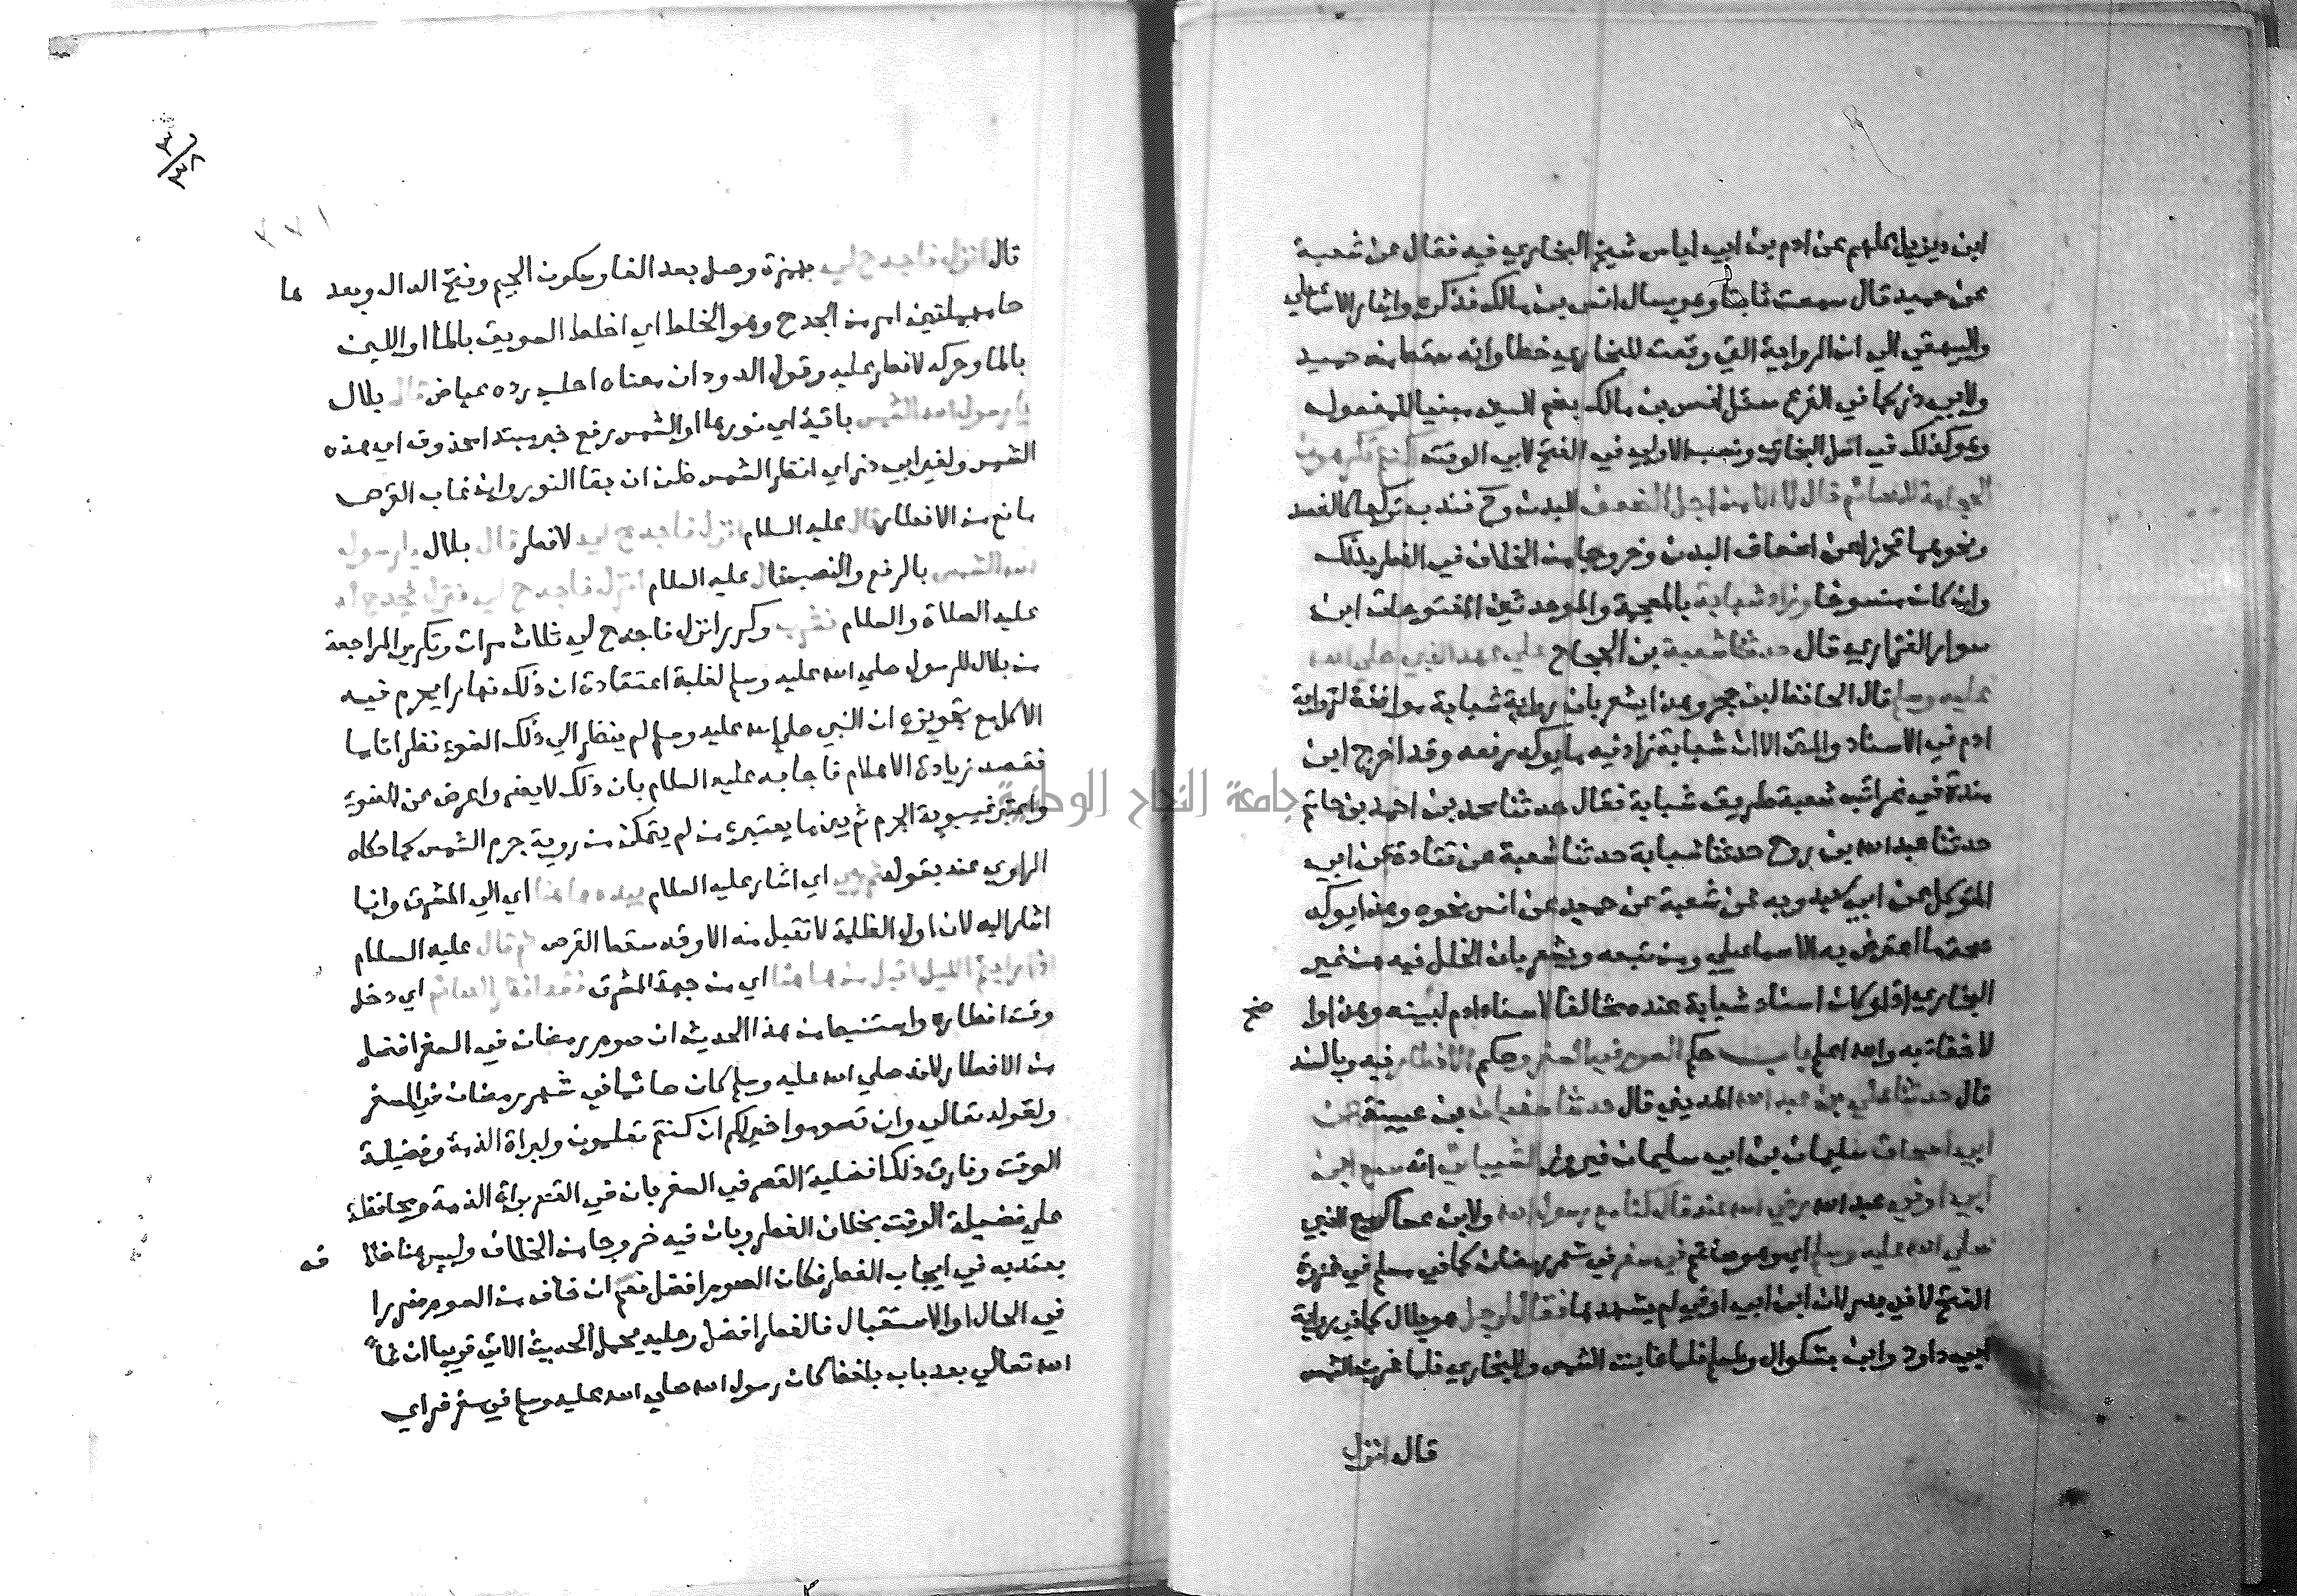 ابن ديزيل كلهم عن ادم بن ابي اياس شيخ البخاري فيه فقال عن شعبة
عن حميد قال سمعت ثابتا وهو يسال انس بن مالك فذكره واشار الاسماعيلي
والبيهقي الي ان الرواية التي وقعت للبخاري خطا وانه سقط منه حميد
ولابي ذر كما في الفرع سئل انس بن مالك بضم السين مبنيا للمفعول
وهو كذلك في اصل البخاري ونصب الاولي في الفتح لابي الوقت اكنتم تكرهون
الحجامة للصائم قال لا الا من اجل الضعف للبدن وح فندب تركها كالفصد
ونحوهما تحرزا عن اضعاف البدن وخروجا من الخلاف في الفطر بذلك
وان كان منسوخا وزاد شبابة بالمعجمة والموحدتين المفتوحات ابن
سوار الفزاري قال حدثنا شعبة بن الحجاج علي عهد النبي صلي الله
عليه وسلم قال الحافظ ابن حجر وهذا يشعر بان رواية شبابة موافقة لرواية
ادم في الاسناد والمتن الا ان شبابة زاد فيه ما يوكد رفعه وقد اخرج ابن
مندة في غرائب شعبة طريق شبابة فقال حدثنا محمد بن احمد بن حاتم
حدثنا عبد الله بن روح حدثنا شبابة حدثنا شعبة عن قتادة عن ابي
المتوكل عن ابي سعيد وبه عن شعبة عن حميد عن انس نحوه وهذا يوكد
صحة ما اعترض به الاسماعيلي ومن تبعه ويشعر بان الخلل فيه من غير
البخاري اذ لو كان اسناد شبابة عنده مخالفا لاسناد ادم لبينه وهذا وا صح
لا خفاء به والله اعلم باب حكم الصوم في السفر وحكم الافطار فيه وبالسند
قال حدثنا علي بن عبد الله المديني قال حدثنا سفيان بن عيينة عن
ابي اسحاق سليمان بن ابي سليمان فيروز الشيباني انه سمع ابن
ابي اوفي عبد الله رضي الله عنه قال كنا مع رسول الله ولابن عساكر مع النبي
صلي الله عليه وسلم اي وهو صائم في سفر في شهر رمضان كما في مسلم في غزوة
الفتح لا في بدر لان ابن ابي اوفي لم يشهدها فقال لرجل هو بلال كما في رواية
ابي داود وابن بشكوال ولمسلم فلما غابت الشمس وللبخاري فلما غربت الشمس
قال انزل
قال انزل فاجدح لي بهمزة وصل بعد الفا وسكون الجيم وفتح الدال وبعدها
حا مهملتين امر من الجدح وهو الخلط اي اخلط السويق بالما او اللبن
بالما وحركه لافطر عليه وقول الداودان معناه احلب رده عياض قال بلال
يا رسول الله الشمس باقية اي نورها او الشمس رفع خبر مبتدا محذوف اي هذه
الشمس ولغير ابي ذر اي انظر الشمس ظن ان بقا النور وان غاب القرص
مانع من الافطار قال عليه السلام انزل فاجدح لي لافطر قال بلال يا رسول
الله الشمس بالرفع والنصب قال عليه السلام انزل فاجدح لي فنزل فجدح له
عليه الصلاة والسلام فشرب وكرر انزل فاجدح لي ثلاث مرات وتكرير المراجعة
من بلال للرسول صلي الله عليه وسلم لغلبة اعتقاده ان ذلك نهارا يحرم فيه
الاكل مع تجويزه ان النبي صلي الله عليه وسلم لم ينظر الي ذلك الضوء نظرا تاما
فقصد زيادة الاعلام فاجابه عليه السلام بان ذلك لا يضر واعرض عن الضوء
واعتبر غيبوبة الجرم ثم بين ما يعتبره من لم يتمكن من روية جرم الشمس كما حكاه
الراوي عنه بقوله ثم رمي اي اشار عليه السلام بيده هاهنا اي الي المشرق وانما
اشار اليه لان اول الظلمة لا تقبل منه الا وقد سقط القرص ثم قال عليه السلام
اذا رايتم الليل اقبل من هاهنا اي من جهة المشرق فقد افطر الصائم اي دخل
وقت افطاره واستنبط من هذا الحديث ان صوم رمضان في السفر افضل
من الافطار لانه صلي الله عليه وسلم كان صائما في شهر رمضان في السفر
ولقوله تعالي وان تصوموا خير لكم ان كنتم تعلمون ولبراة الذمة وفضيلة
الوقت وفارق ذلك افضلية القصر في السفر بان في القصر براة الذمة ومحافظة
علي فضيلة الوقت بخلاف الفطر وبان فيه خروجا من الخلاف وليس هنا خلاف
يعتد به في ايجاب الفطر فكان الصوم افضل نعم ان خاف من الصوم ضررا
في الحال او الاستقبال فالفطر افضل وعليه يحمل الحديث الاتي قريبا ان شا
الله تعالي بعد باب بلفظ كان رسول الله صلي الله عليه وسلم في سفر فراي
جامعة النجاح الوطنية